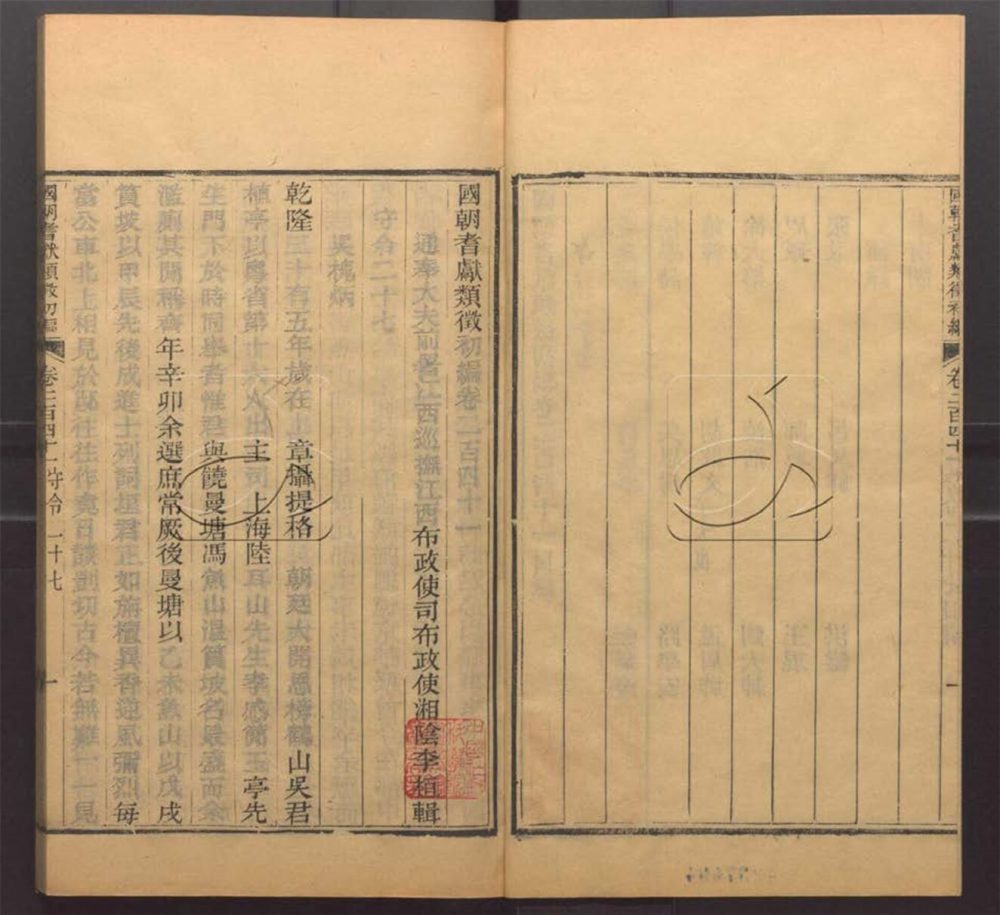 國朝耆獻類徵初編 卷二百四十
國朝耆獻類徵初編卷二百四十一
通奉大夫前署江西巡撫江西布政使司布政使湘陰李桓輯
守令二十七
吳槐炳
乾隆三十有五年歲在上章攝提格 朝廷大開恩榜鶴山吳君
植亭以粵省第十六人出主司上海陸耳山先生李玉亭先
生門下於時同舉者惟君與饒曼塘馮魚山溫篔坡名最盛而余
濫廁其間稱齊年辛卯余選庶常厥後曼塘以乙未魚山以戊戌
篔坡以甲辰先後成進士列詞垣君正如旃檀異香逆風彌烈每
當公車北上相見於邸往往作竟日談剴切古今若無難一一見
國朝耆獻類徵初編 卷二百四十一 守令二十七 一